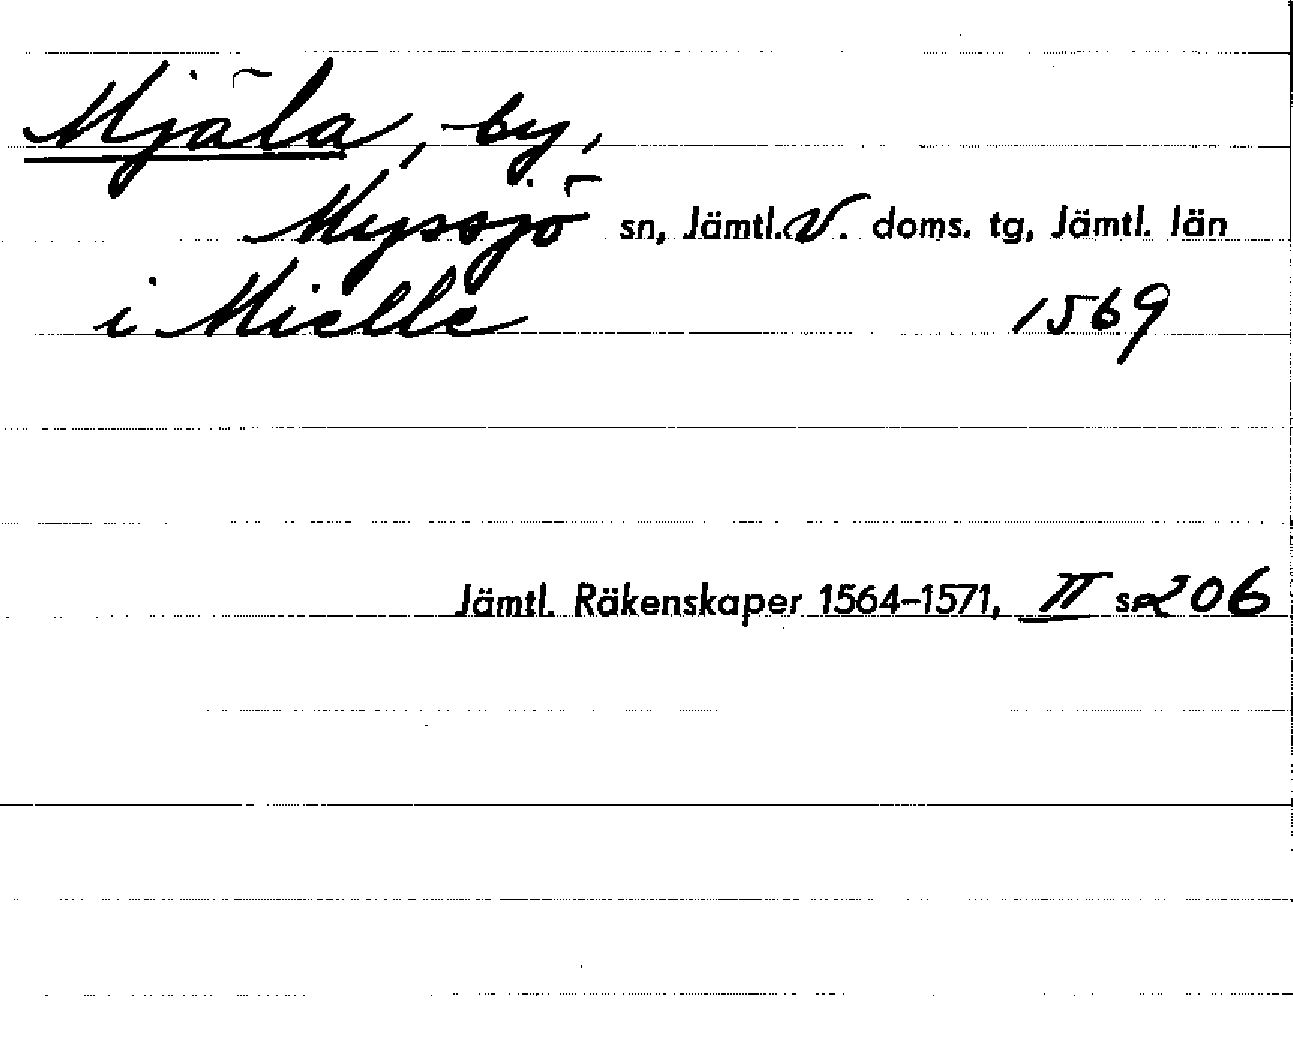 Mjäla, by,
Myssjö sn, Jämtl. V. doms. tg, Jämtl. län
i Mielle 1569
Jämtl. Räkenskaper 1564–1571, II s. 206